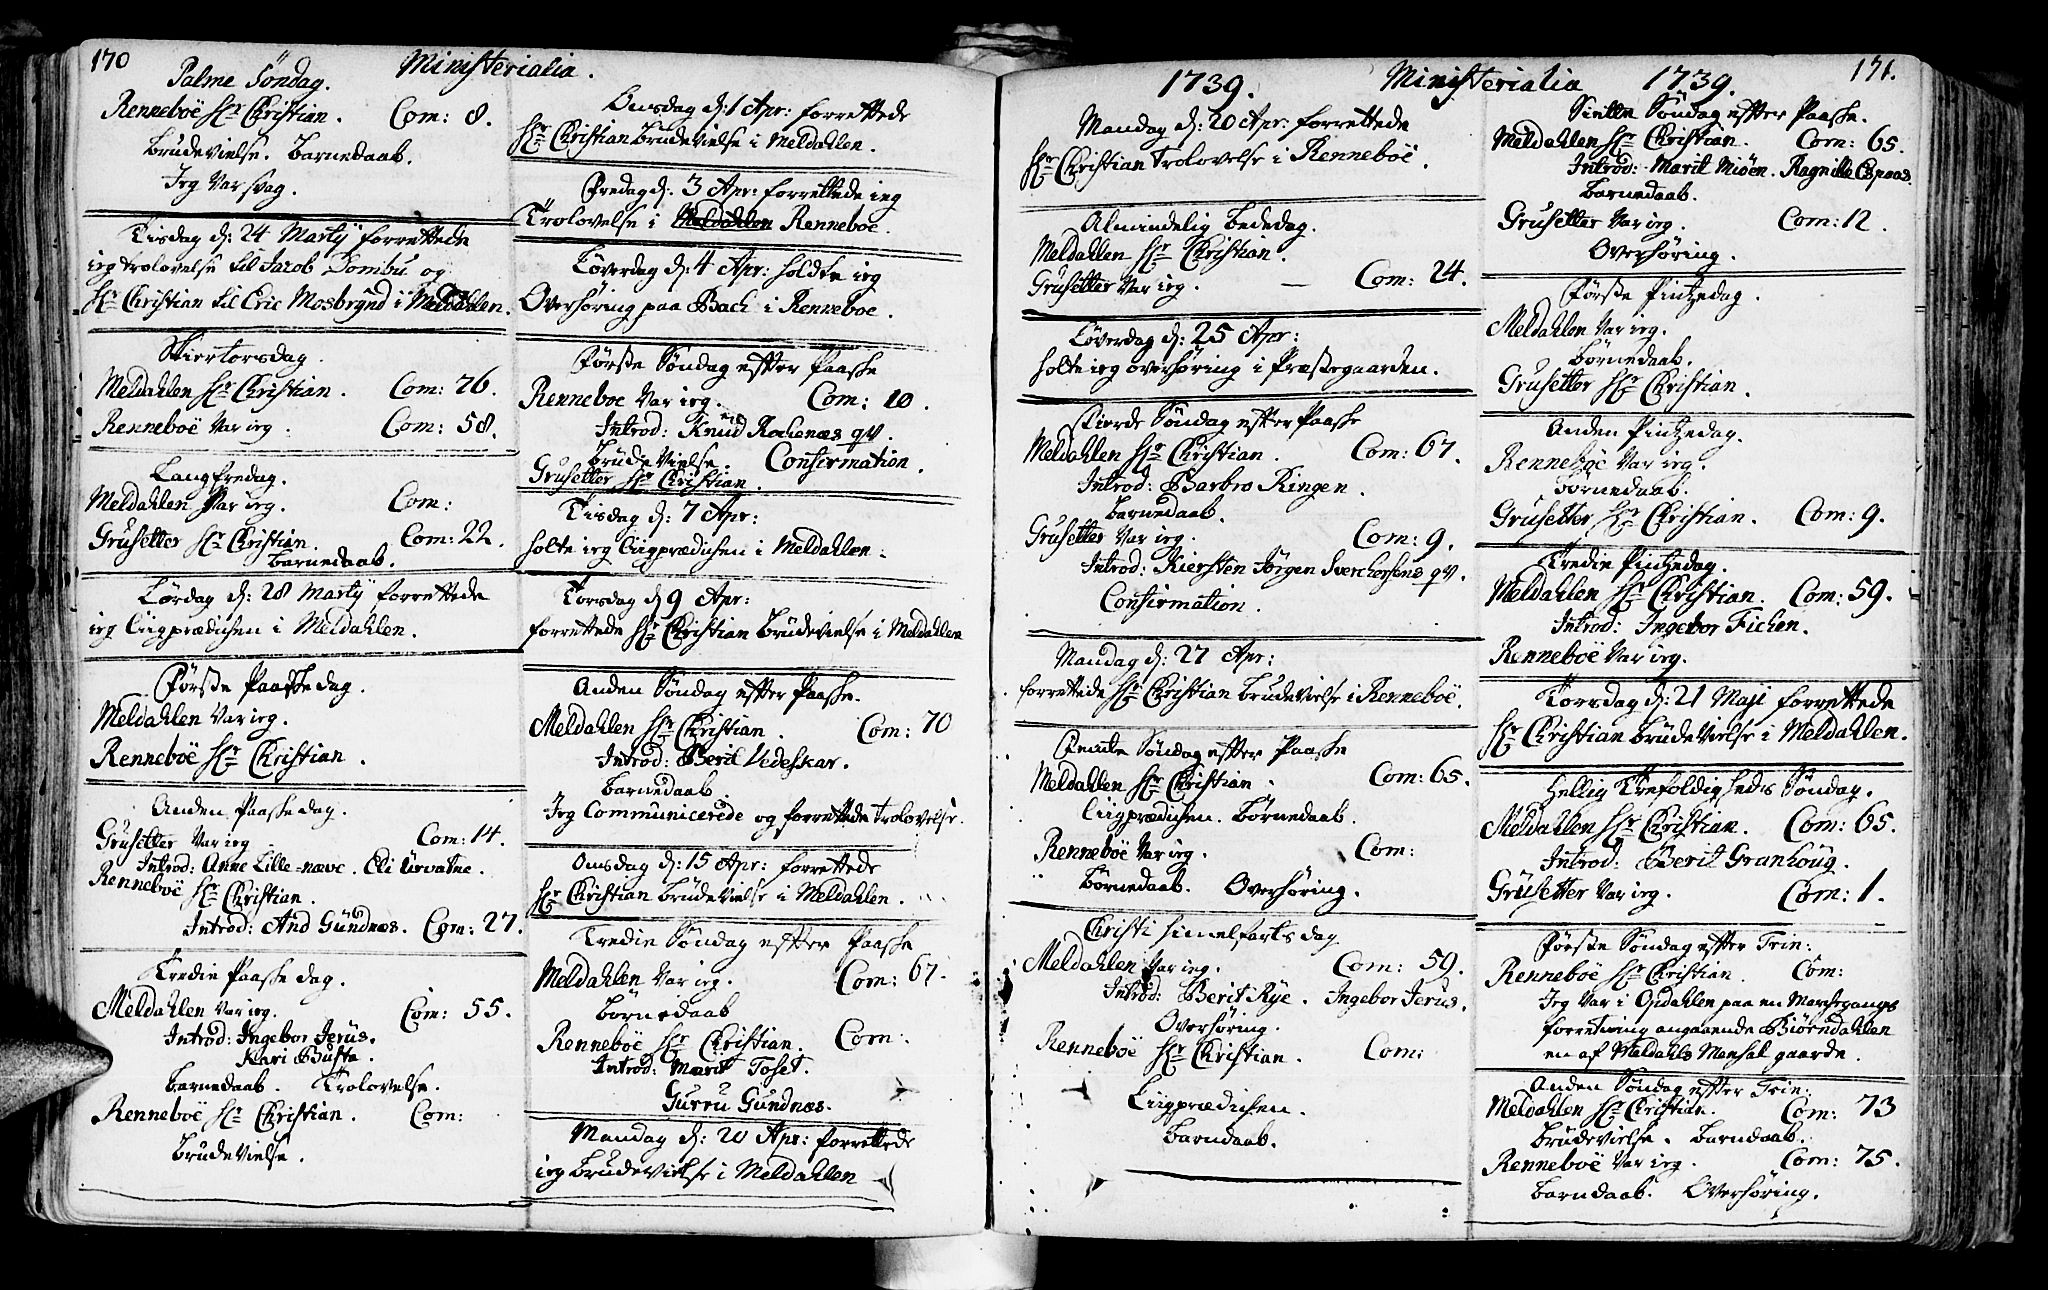 170
Ministerialia.
Palme Söndag.
Renneboë Hr Christian. Com: 8.
Brudevielse. Barnedaab.
Jeg Var svag.
Tisdag d: 24 Martij forrettede
ieg trolovelse til Jacob Dombu og
Hr Christian til Eric Mosbrynd i Meldahlen.
Skiertorsdag.
Meldahlen Hr Christian. Com: 76.
Renneboë Var ieg. Com: 58.
Langfredag.
Meldahlen Var ieg. Com:
Grusetter Hr Christian. Com: 22.
Barnedaab.
Lørdag d: 28 Martij forrettede
ieg Liigprædichen i Meldahlen.
Første Paaskedag.
Meldahlen Var ieg.
Renneboë Hr Christian.
Anden Paaskedag.
Grusetter Var ieg Com: 14.
Introd: Anne Lille-næve. Eli Urvatne.
Renneboë Hr Christian.
Introd: And Gündnæs. Com: 27.
Tredie Paaske dag.
Meldahlen Var ieg. Com: 55.
Introd: Ingebor Jerüs.
Kari Büsta.
Barnedaab. Trolovelse.
Renneboë Hr Christian. Com:
Brudevielse.
Onsdag d: 1 Apr: forrettede
Hr Christian brudevielse i Meldahlen.
Fredag d: 3 Apr: forrettede ieg
Trolovelse i Meldahlen Renneboë.
Løverdag d: 4 Apr: holdte ieg
Overhøring paa Bach i Renneboe.
Første Søndag efter Paaske
Renneboe Var ieg. Com: 10.
Introd: Knud Rochenæs qv.
Brudevielse. Confirmation.
Grusetter Hr Christian.
Tisdag d: 7 Apr:
holte ieg Liigprædichen i Meldahlen.
Torsdag d 9 Apr:
forrettede Hr Christian Brüdevielse i Meldahlen
Anden Søndag efter Paaske.
Meldahlen Hr Christian. Com: 70
Introd: Berit Vedeskar.
Barnedaab.
Jeg Communicerede og forrettede trolovelse.
Onsdag d: 15 Apr: forrettede
Hr Christian Brüdevielse i Meldahlen.
Tredie Søndag efter Paaske
Meldahlen Var ieg. Com: 67.
Börnedaab
Renneboë Hr Christian. Com:
Introd: Marit Toset.
Gurru Gündnæs.
Mandag d: 20 Apr: forrettede
ieg Brudevielse i Meldahlen
1739. Ministerialia 1739. 171.
Mandag d: 20 Apr: forrettede
Hr Christian trolovelse i Renneboë.
Almindelig Bededag.
Meldahlen Hr Christian.
Grusetter Var ieg. — Com: 24.
Løverdag d: 25 Apr:
holte ieg overhøring i Præstegaarden.
Fierde Søndag efter Paaske
Meldahlen Hr Christian. Com: 67.
Introd: Barbro Ringen.
Barnedaab.
Grusetter Var ieg. Com: 9.
Introd: Kiersten Jørgen Sverchersens qv.
Confirmation.
Mandag d: 27 Apr:
forrettede Hr Christian brudevielse i Renneboë.
Femte Søndag efter Paaske
Meldahlen Hr Christian. Com: 65.
Liigprædichen. Börnedaab.
Renneboë Var ieg. Com:
Börnedaab. Overhøring.
Christi himelfarts dag
Meldahlen Var ieg. Com: 59.
Introd: Berit Rye. Ingebor Jerus.
Overhøring.
Renneboë Hr Christian. Com:
Liigprædichen.
Barndaab.
Siette Søndag efter Paaske.
Meldahlen Hr Christian. Com: 65.
Introd: Marit Misön. Ragnille Espaas.
Barnedaab.
Grusetter Var ieg. Com: 12.
Overhøring.
Første Pintzedag.
Meldahlen Var ieg.
Börnedaab.
Grusetter Hr Christian.
Anden Pintzedag.
Renneboe Var ieg.
Börnedaab.
Grusetter Hr Christian. Com: 9.
Tredie Pintzedag.
Meldahlen Hr Christian. Com: 59.
Introd: Ingebor Fichen.
Renneboë Var ieg.
Torsdag d: 21 Maji forrettede
Hr Christian brudevielse i Meldahlen.
Hellig Trefoldigheds Søndag.
Meldahlen Hr Christian. Com: 65.
Introd: Berit Granhoüg.
Grüsetter Var ieg. Com: 1.
Første Søndag efter Trin:
Renneboë Hr Christian. Com:
Jeg Var i Opdahlen paa en Marchegangs
forretning angaaende Biørndahlen
en af Meldahls Mensal gaarde.
Anden Søndag efter Trin:
Meldahlen Hr Christian. Com: 73
Brudevielse. Barndaab.
Renneboë Var ieg. Com: 75.
Barndaab. Overhøring.